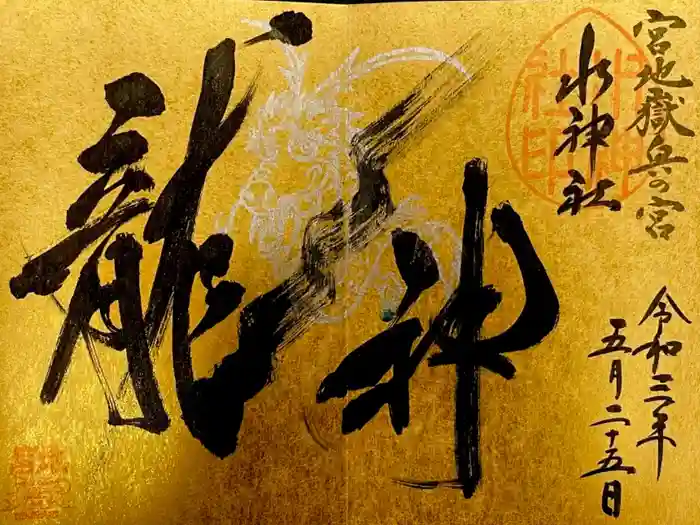 宮地嶽奥の宮
水神社
龍神
令和三年
五月二十五日